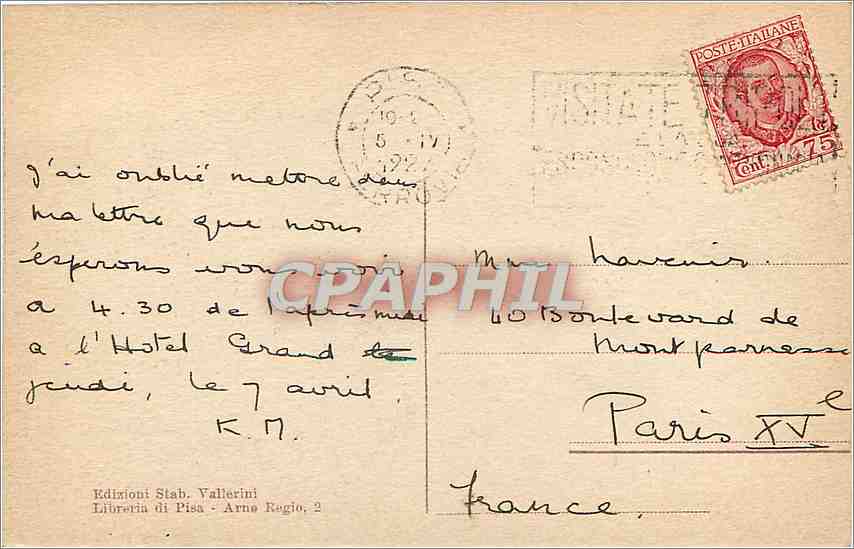 POSTE·ITALIANE
Cent. 75
VISITATE
J'ai oublié mettre dans
ma lettre que nous
ésperons vous voir
a 4.30 de l'après midi
a l'Hotel Grand
jeudi, le 7 avril.
K. M.
CPAPHIL
Mme
40 Boulevard de
Montparnasse
Paris XVe
France.
Edizioni Stab. Vallerini
Libreria di Pisa - Arno Regio, 2